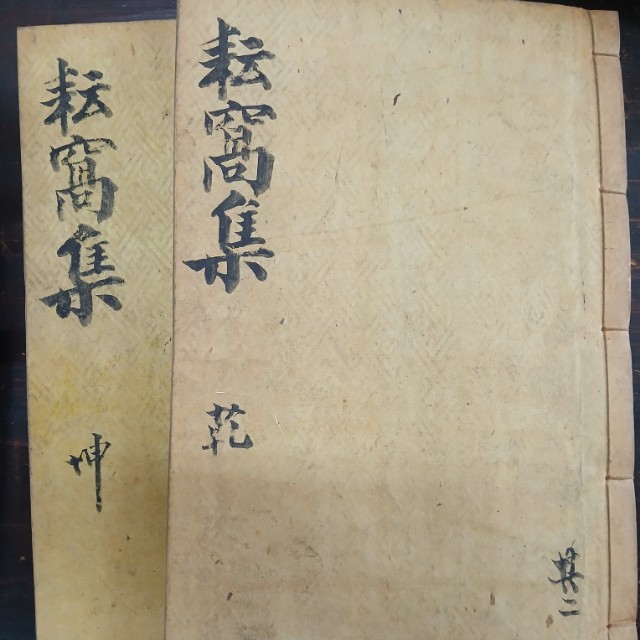 耘窩集
乾
共二
耘窩集
坤